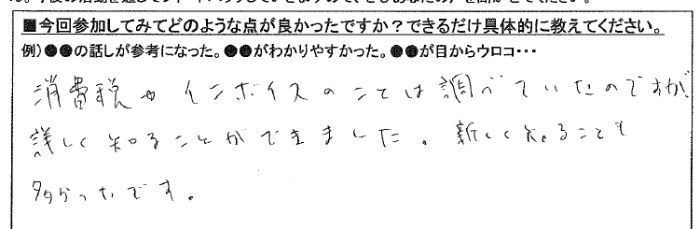 ■今回参加してみてどのような点が良かったですか？できるだけ具体的に教えてください。
例）●●の話しが参考になった。●●がわかりやすかった。●●が目からウロコ・・・
消費税や インボイスのことは調べていたのですが、
詳しく知ることができました。新しく知ることも
多かったです。